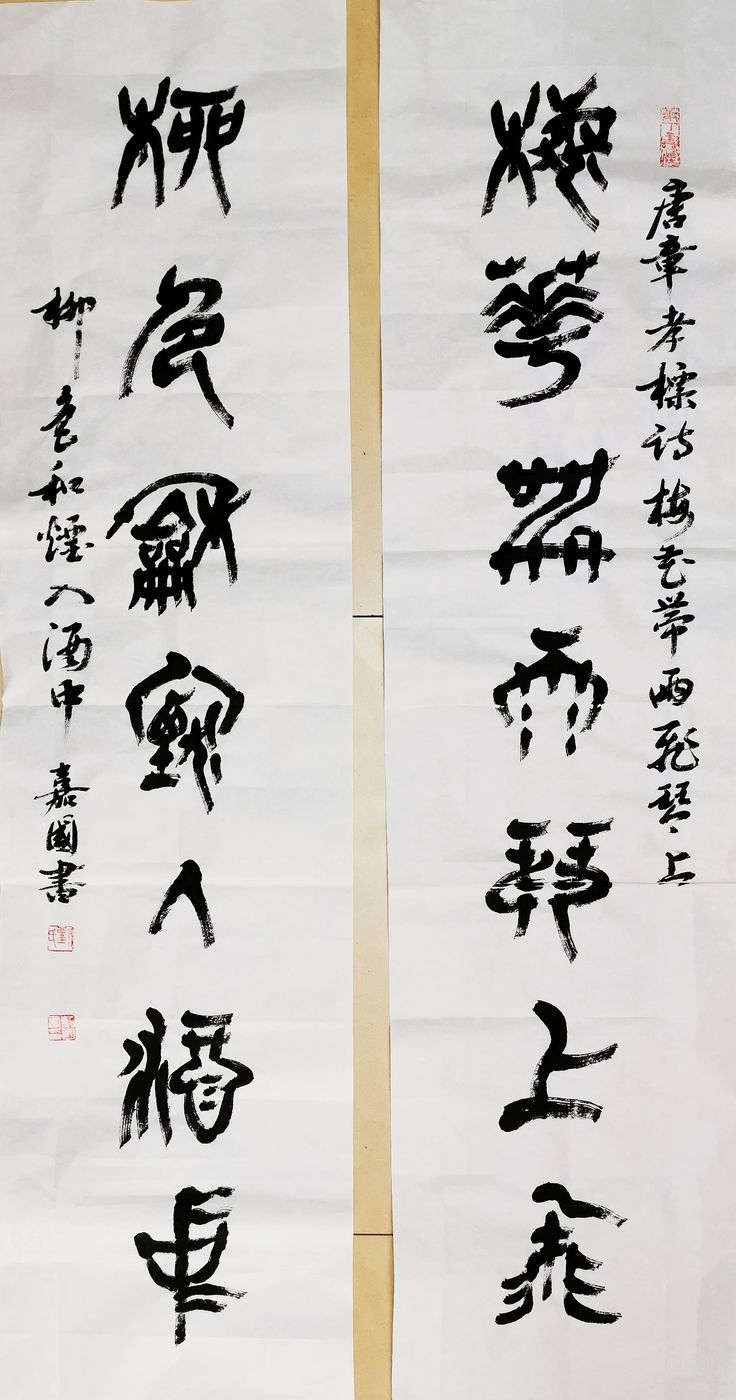 唐章孝標诗梅花帶雨飛琴上
梅華帶雨琴上飛
柳色龢煙入酒中
柳色和煙入酒中 嘉國書